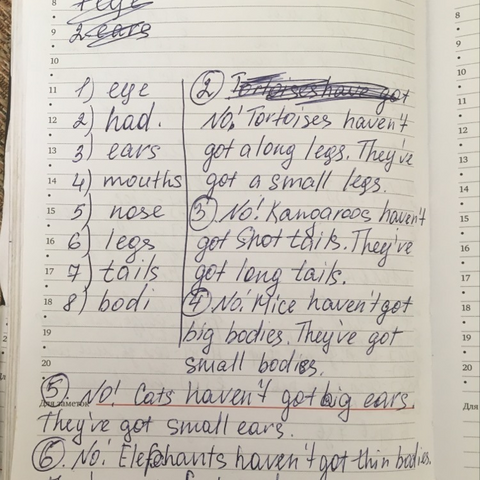 1 eye
2 ears
1) eye
2) had.
3) ears
4) mouths
5) nose
6) legs
7) tails
8) bodi
② Tortoises have got
No! Tortoises haven't
got a long legs. They've
got a small legs.
③ No! Kangaroos haven't
got Shot tails. They've
got long tails.
④ No! Mice haven't got
big bodies. They've got
small bodies.
⑤. No! Cats haven't got big ears.
Для заметок
They've got small ears.
⑥. No! Elephants haven't got thin bodies.
8
9
10
11
12
13
14
15
16
17
18
19
20
8
9
10
11
12
13
14
15
16
17
18
19
20
Для